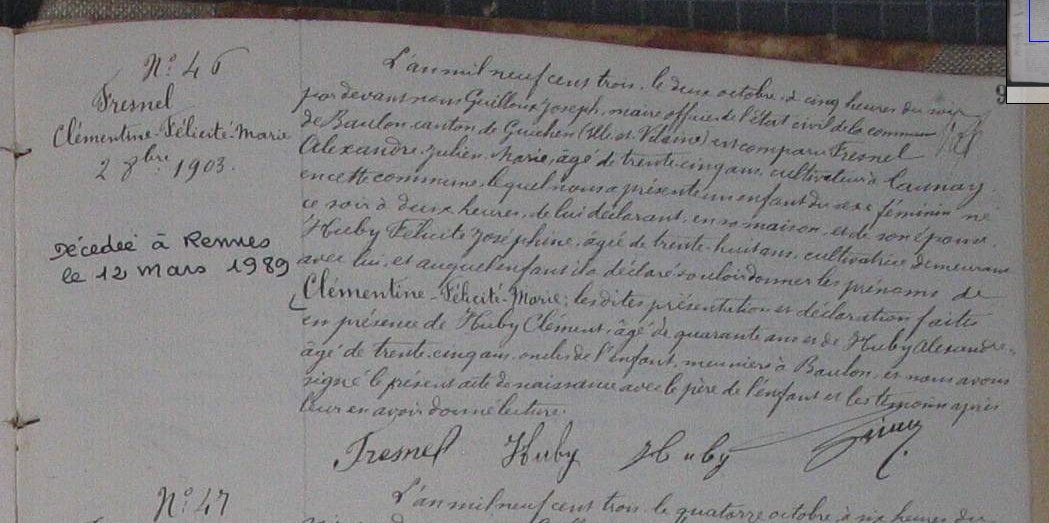 N° 46
Fresnel
Clémentine-Félicité-Marie
2 8bre 1903.
Décédée à Rennes
le 12 Mars 1989
L'an mil neuf cent trois, le deux octobre, à cinq heures du soir
par devant nous Guilloux Joseph, maire officier de l'état civil de la commune
de Baulon, canton de Guichen (Ille et Vilaine) est comparu Fresnel
Alexandre-Julien-Marie, âgé de trente-cinq ans, cultivateur à Launay
en cette commune, lequel nous a présenté un enfant du sexe féminin né
ce soir à deux heures, de lui déclarant, en sa maison, et de son épouse
Huby Félicité Joséphine, âgée de trente-huit ans, cultivatrice demeurant
avec lui, et auquel enfant il a déclaré vouloir donner les prénoms de
Clémentine-Félicité-Marie; les dites présentation et déclaration faites
en présence de Huby Clément, âgé de quarante ans et de Huby Alexandre,
âgé de trente-cinq ans, oncles de l'enfant, meuniers à Baulon, et nous avons
signé le présent acte de naissance avec le père de l'enfant et les témoins après
leur en avoir donné lecture.
Fresnel Huby Huby
N° 47
L'an mil neuf cent trois, le quatorze octobre, à six heures du